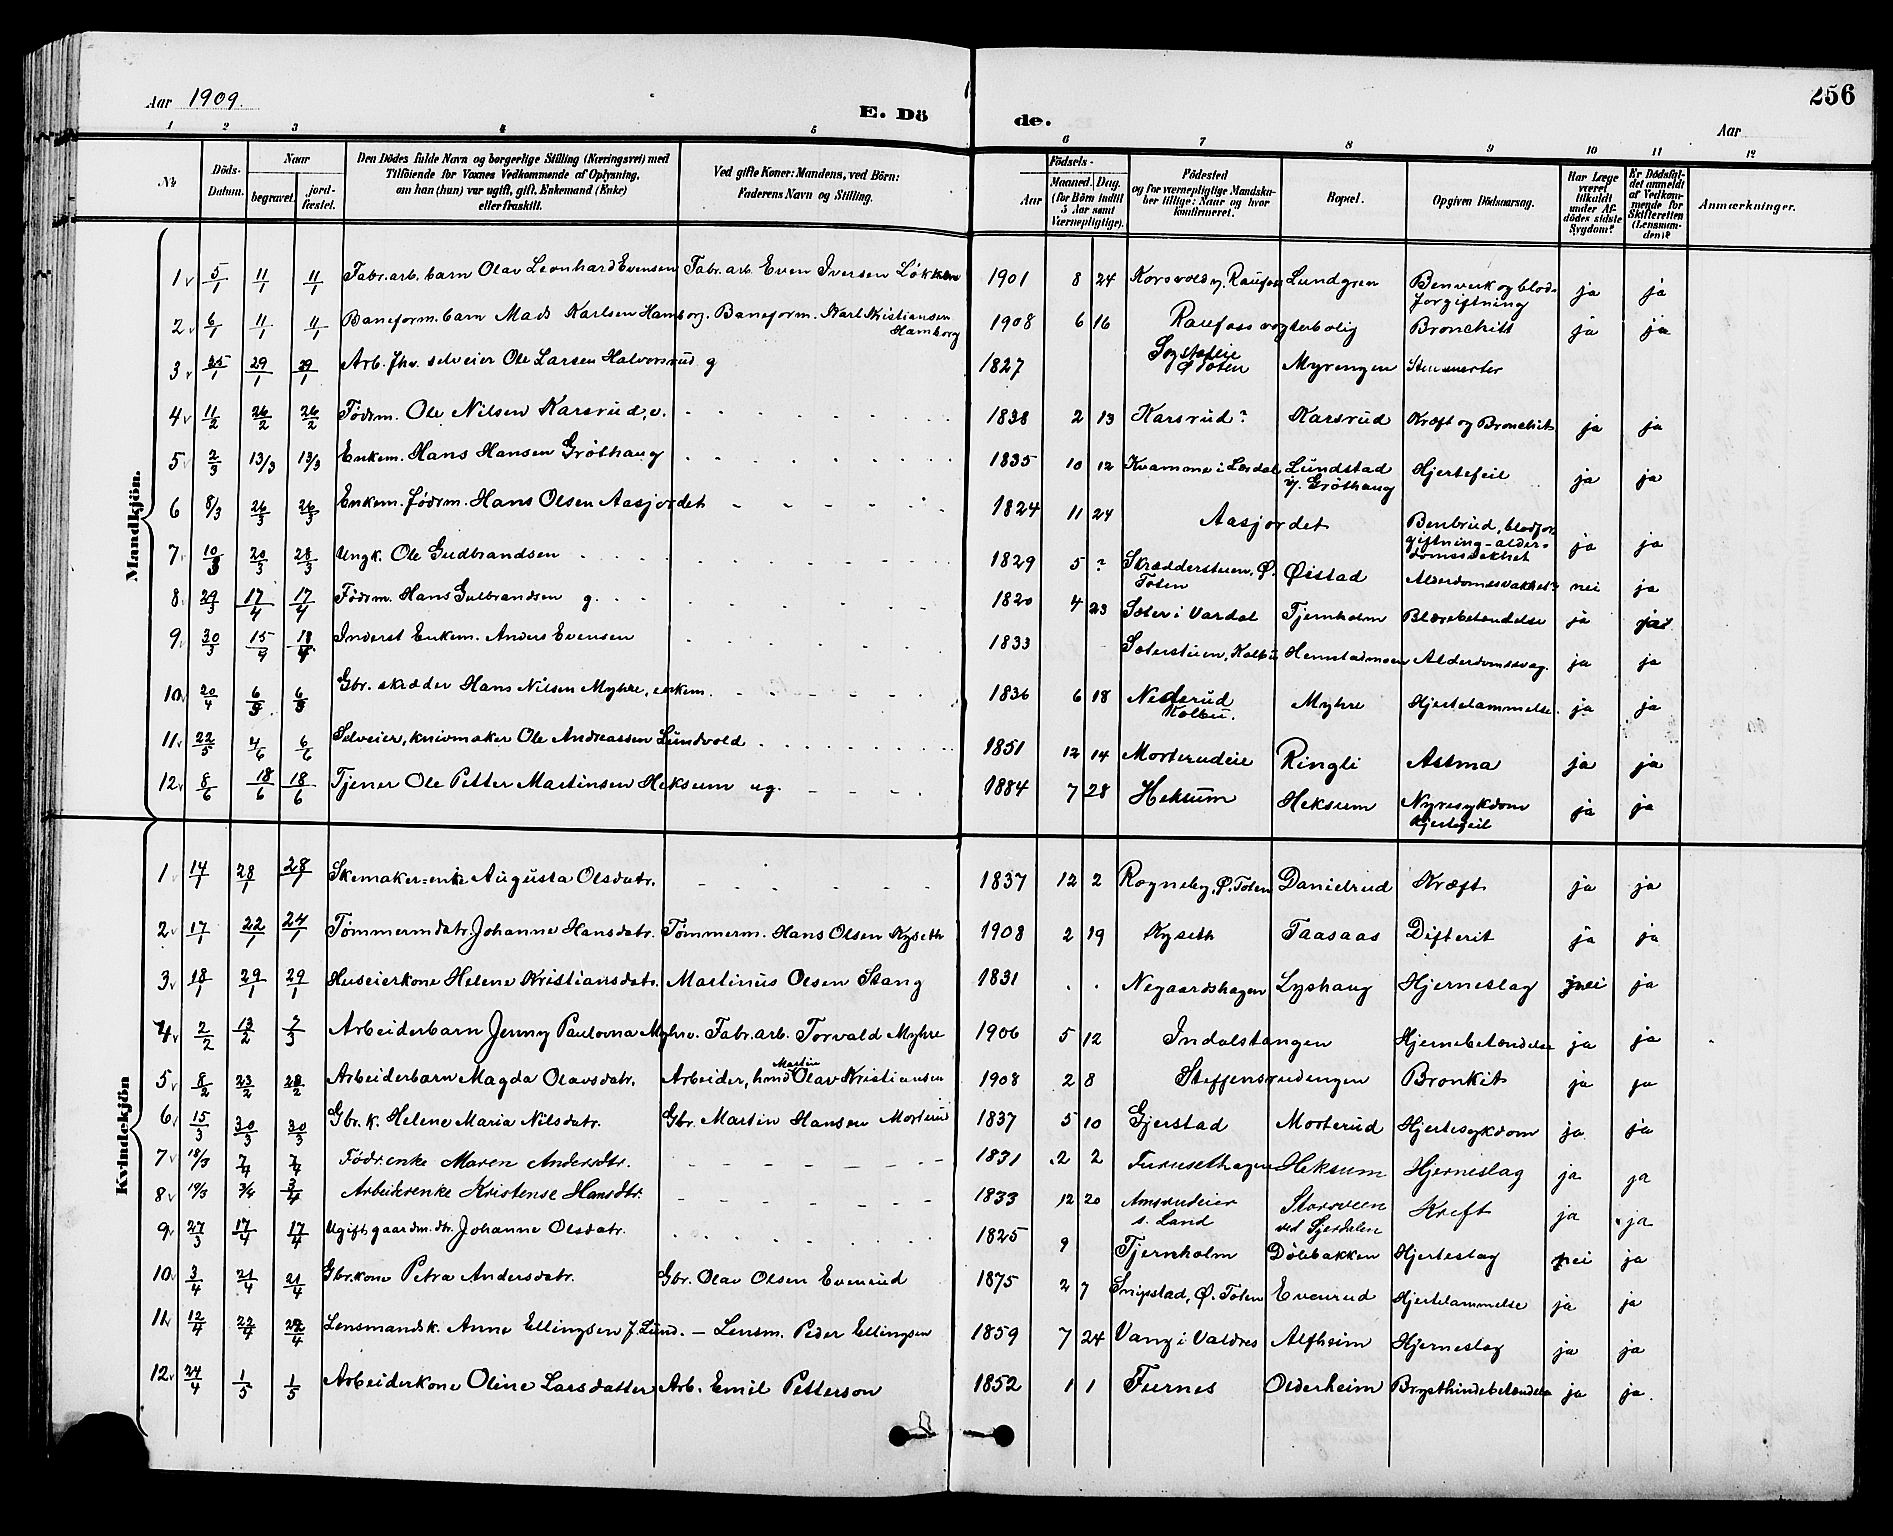 Aar 1909.
E. Dö
de.
256
Aar
1 2 3 4 5 6 7 8 9 10 11 12
No
Döds-Datum.
Naar
begravet.
jord-fæstet.
Den Dödes fulde Navn og borgerlige Stilling (Næringsvei) med
Tilföiende for Voxnes Vedkommende af Oplysning,
om han (hun) var ugift, gift, Enkemand (Enke)
eller fraskilt.
Ved gifte Koner: Mandens, ved Börn:
Faderens Navn og Stilling.
Födsels-
Aar
Maaned. Dag.
(for Börn indtil
5 Aar samt
Værnepligtige).
Födested
og for værnepligtige Mandska-
ber tillige: Naar og hvor
konfirmeret.
Bopæl.
Opgiven Dödsaarsag.
Har Læge
været
tilkaldt
under Af-
dödes sidste
Sygdom?
Er Dödsfal-
det anmeldt
af Vedkom-
mende for
Skifteretten
(Lensman-
den)?
Anmærkninger.
Mandkjön.
1 5/1 11/1 11/1 Fabr.arb. barn Olav Leonhard Evensen Fabr.arb. Even Iversen Løkken 1901 8 24 Korsvold, Raufoss Lundgren Benverk og blod-forgiftning ja ja
2 6/1 11/1 11/1 Baneform. barn Mads Karlsen Hamborg. Baneform. Karl Kristiansen Hamborg 1908 6 16 Raufoss vogterbolig Bronchitt ja ja
3 25/1 29/1 29/1 Arb. fhv. selveier Ole Larsen Halvorsrud g 1827 Ø Toten Myrengen
4 11/2 26/2 26/2 Fødrm. Ole Nilsen Karsrud, e. 1838 2 13 Karsrud? Karsrud Kræft og Bronchit ja ja
5 2/3 13/3 13/3 Enkem. Hans Hansen Grøthaug 1835 10 12 Kvamme i Lærdal Lundstad v/ Grøthaug Hjertefeil ja ja
6 8/3 26/3 26/3 Enkem. fødrm. Hans Olsen Aasjordet 1824 11 24 Aasjordet Benbrud, blodfor-giftning-alder-domssvakhet ja ja
7 10/3 20/3 28/3 Ungk. Ole Gudbrandsen 1829 5 ? Skræddersteuen, Ø. Toten Øistad Alderdomssvakhet? nei ja
8 29/3 17/4 17/4 Fødrm. Hans Gulbrandsen g. 1820 4 23 Sæter i Vardal Tjernholm Blærebetændelse ja ja
9 30/3 15/4 18/4 Inderst Enkem. Anders Evensen 1833 Sæterstuen, Kolbu Hemstadmoen Alderdomssvag. ja ja
10 20/4 6/5 6/5 Gbr. skræder Hans Nilsen Myhre, enkem. 1836 6 18 Nederud Kolbu. Myhre Hjertelammelse. ja ja
11 22/5 4/6 6/6 Selveier, knivmaker Ole Andreassen Lundvold 1851 12 14 Morterudeie Ringli Astma ja ja
12 8/6 18/6 18/6 Tjener Ole Petter Martinsen Heksum ug. 1884 7 28 Heksum Heksum Nyresykdom Hjertefeil ja ja
Kvindekjön
1 14/1 28/1 28/1 Skomaker-enke Augusta Olsdatr. 1837 12 2 Rogneby, Ø. Toten Danielrud Kræft ja ja
2 17/1 22/1 24/1 Tømmermdatr. Johanne Hansdatr. Tømmerm. Hans Olsen Kyseth 1908 2 19 Kyseth Taasaas Difterit ja ja
3 18/1 29/1 29/1 Huseierkone Helene Kristiansdatr. Martinus Olsen Stang 1831 Negaardshagen Lyshaug Hjerneslag nei ja
4 2/2 13/2 7/3 Arbeiderbarn Jenny Paulovna Myhre. Fabr.arb. Torvald Myhre 1906 5 12 Indalstangen Hjernebetændelse ja ja
5 8/2 23/2 28/2 Arbeiderbarn Magda Olavsdatr. Arbeider, hmd Martin Olav Kristiansen 1908 2 8 Steffensrudengen Bronkit ja ja
6 15/3 30/3 30/3 Gbr. k. Helene Maria Nilsdatr. Gbr. Martin Hansen Morterud 1837 5 10 Gjerstad Morterud Hjertesykdom ja ja
7 18/3 7/4 7/4 Fødr.enke Maren Andersdtr. 1831 2 2 Furusethagen Heksum Hjerneslag ja ja
8 19/3 3/4 3/4 Arbeiderenke Kristense Hansdtr. 1833 12 20 Amsrudeier s. Land Storsveen ved Gjerdalen Kreft ja ja
9 27/3 17/4 17/4 Ugift gaardm.dtr. Johanne Olsdatr. 1825 9 Tjernholm Dølibakken Hjerteslag nei ja
10 3/4 21/4 21/4 Gbr.kone Petra Andersdatr. Gbr. Olav Olsen Evenrud 1875 2 7 Snipstad, Ø. Toten Evenrud Hjertelammelse ja ja
11 12/4 22/4 22/4 Lensmandsk. Anne Ellingsen f. Lund. - Lensm. Peder Ellingsen 1859 7 24 Vang i Valdres Alfheim Hjerneslag ja ja
12 24/4 1/5 1/5 Arbeiderkone Oline Larsdatter Arb. Emil Petterson 1852 1 1 Furnes Olderheim Brysthindebetændelse ja ja.